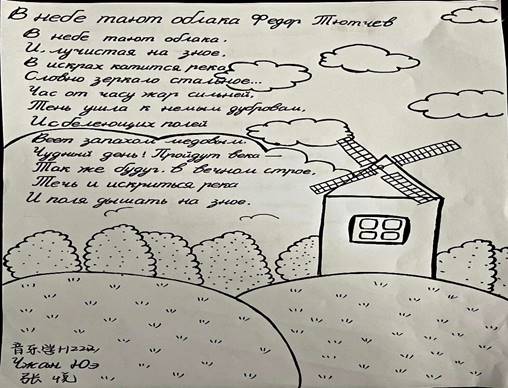 В небе тают облака Федор Тютчев
В небе тают облака,
И, лучистая на зное,
В искрах катится река,
Словно зеркало стальное...
Час от часу жар сильней,
Тень ушла к немым дубровам,
И с белеющих полей
Веет запахом медовым.
Чудный день! Пройдут века —
Так же будут, в вечном строе,
Течь и искриться река
И поля дышать на зное.
音乐学H2222
Чжан Юэ
张 悦